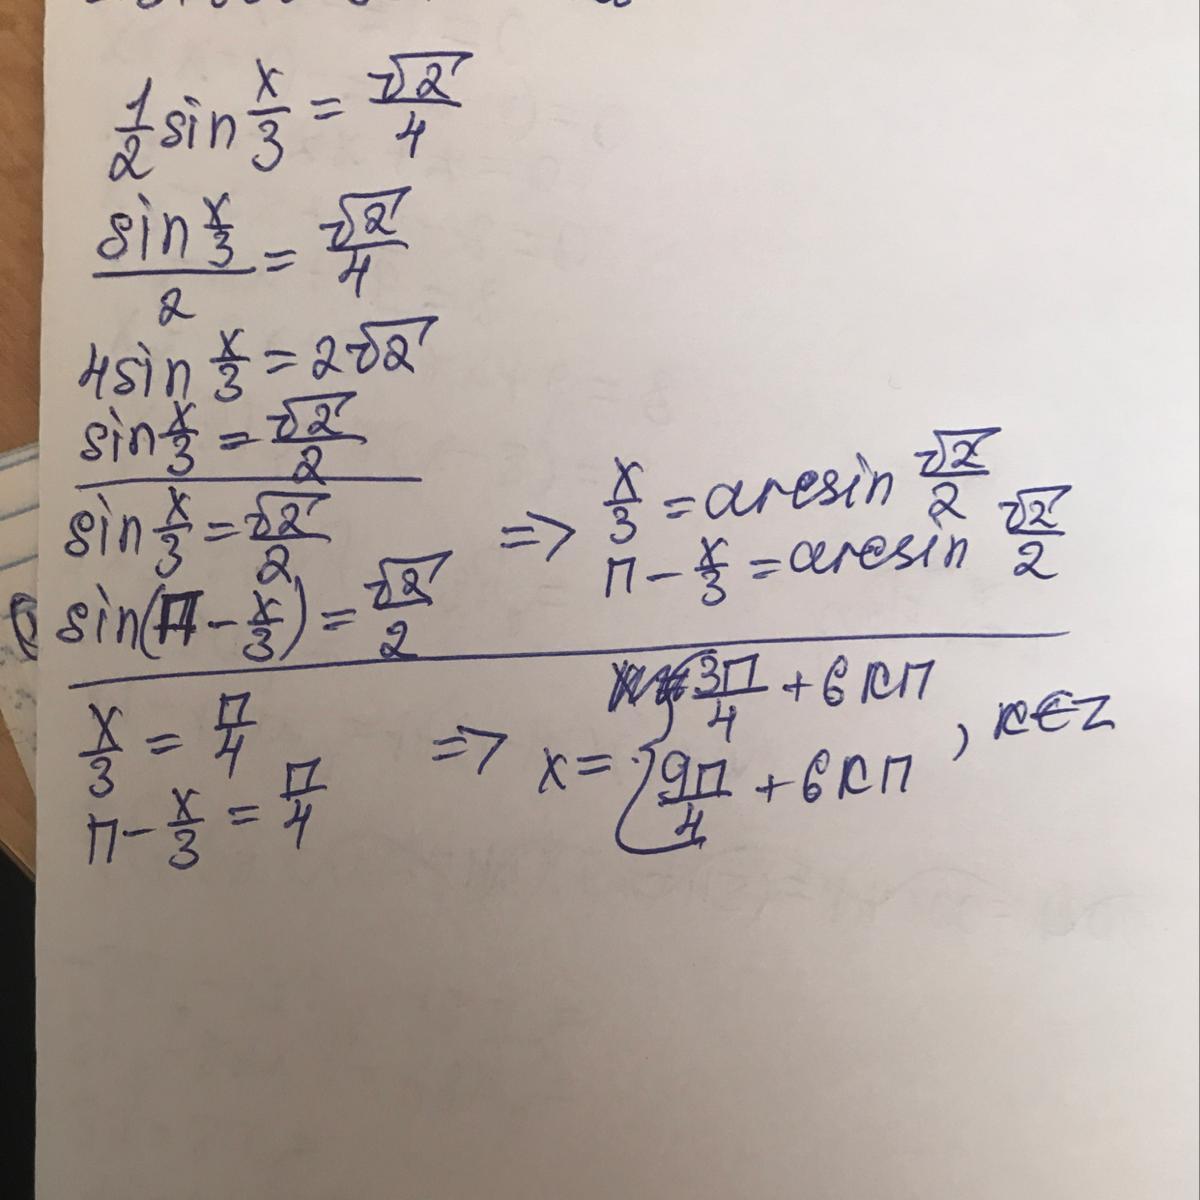 1/2 sin x/3 = √2/4
sin x/3 / 2 = √2/4
4sin x/3 = 2√2
sin x/3 = √2/2
sin x/3 = √2/2 => x/3 = arcsin √2/2
sin(π - x/3) = √2/2 π - x/3 = arcsin √2/2
x/3 = π/4 => x = { 3π/4 + 6kπ
π - x/3 = π/4 9π/4 + 6kπ , k∈Z